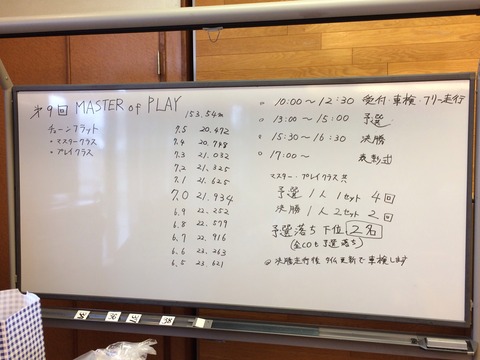 第9回 MASTER of PLAY
153.54m
チェーンフラット
・マスタークラス
・プレイクラス
7.5 20.472
7.4 20.748
7.3 21.032
7.2 21.325
7.1 21.625
7.0 21.934
6.9 22.252
6.8 22.579
6.7 22.916
6.6 23.263
6.5 23.621
○ 10:00～12:30 受付・車検・フリー走行
○ 13:00～15:00 予選
○ 15:30～16:30 決勝
○ 17:00～ 表彰式
マスター・プレイクラス共
予選 1人 1セット 4回
決勝 1人 2セット 2回
予選落ち 下位 2名
(全COも予選落ち)
決勝走行後 タイム更新で車検します